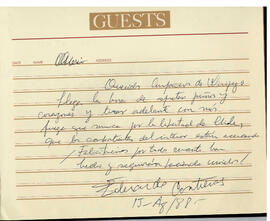 GUESTS
DATE NAME ADDRESS
Queridos Compañeros de
llegó la hora de apretar puños y
corazones y tirar adelante con más
fuerza que nunca por la libertad de Chile,
que los combatientes del interior están
Felicitaciones por todo cuanto han
hecho y seguirán haciendo
Eduardo Contreras
15-Ag/88-